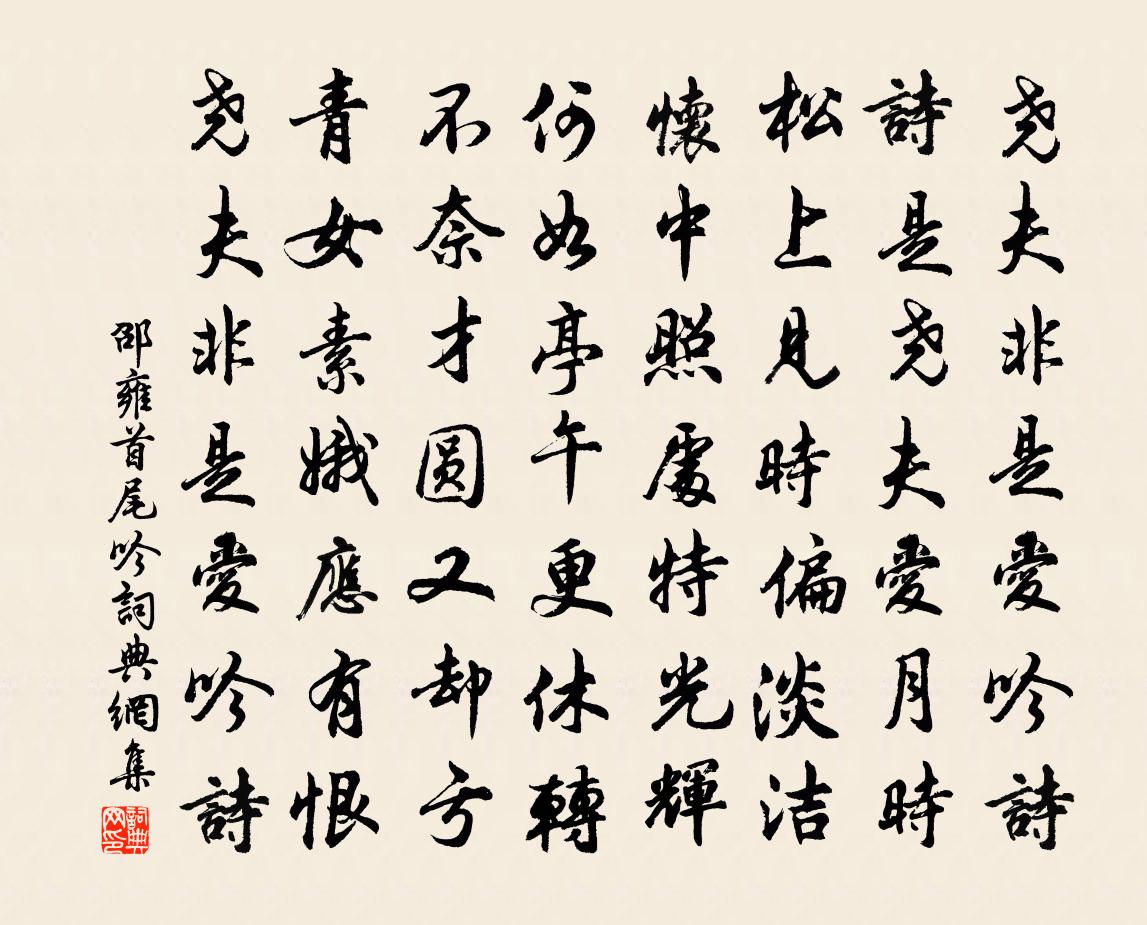 尧夫非是愛吟詩
詩是尧夫愛月時
松上見時偏淡洁
懷中照處特光輝
何如亭午更休轉
不奈才圓又却亏
青女素娥應有恨
尧夫非是愛吟詩
邵雍首尾吟詞典網集
詞典网印